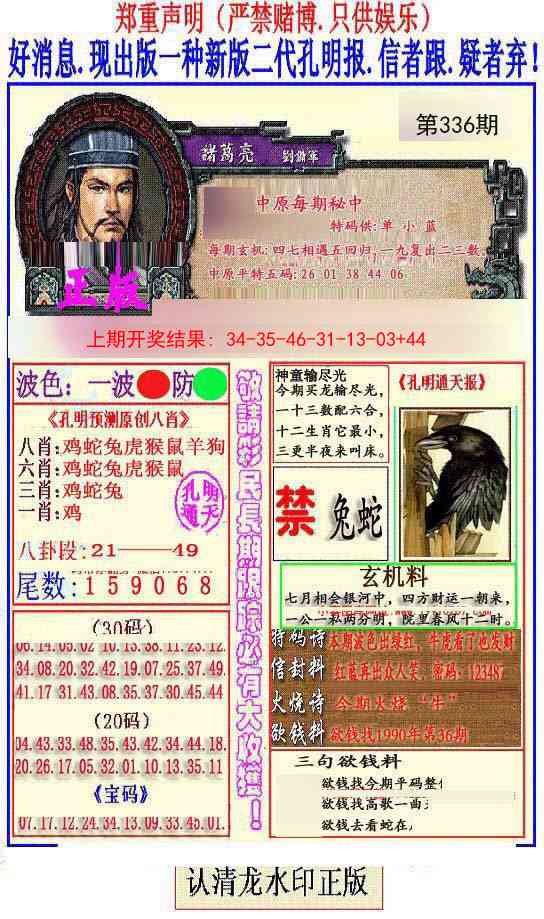 郑重声明（严禁赌博.只供娱乐）
好消息.现出版一种新版二代孔明报.信者跟.疑者弃!
第336期
諸葛亮
劉備軍
中原每期秘中
特码供:单 小 蓝
每期玄机:四七相遇五回归,一九复出二三数.
中原平特五码:26 01 38 44 06
正版
上期开奖结果: 34-35-46-31-13-03+44
波色：一波 防
《孔明预测原创八肖》
八肖:鸡蛇兔虎猴鼠羊狗
六肖:鸡蛇兔虎猴鼠
三肖:鸡蛇兔
一肖:鸡
孔明
通天
八卦段:21——49
尾数:159068
(30码)
06.14.05.02.10.13.38.11.23.12.
34.08.20.32.42.19.07.25.37.49.
41.17.31.43.08.35.37.30.45.44
(20码)
04.43.33.48.35.43.42.34.44.18.
20.26.17.05.32.01.10.13.35.11
《宝码》
07.17.12.24.34.13.09.33.45.01.
敬請彩民長期跟踪必有大收獲！
神童输尽光
今期买龙输尽光,
一十三数配六合,
十二生肖它最小,
三更半夜来叫床。
《孔明通天报》
禁
兔蛇
玄机料
七月相会银河中，四方财运一朝来,
一公一私两分明，院里春风十二时。
特码诗 本期波色出绿红，牛虎看了也发财
信封料 红蓝再出众人笑，密码：123487
火烧诗 今期火烧“牛”
欲钱料 欲钱找1990年第36期
三句欲钱料
欲钱找今期平码整
欲钱找高歌一曲
欲钱去看蛇在
认清龙水印正版